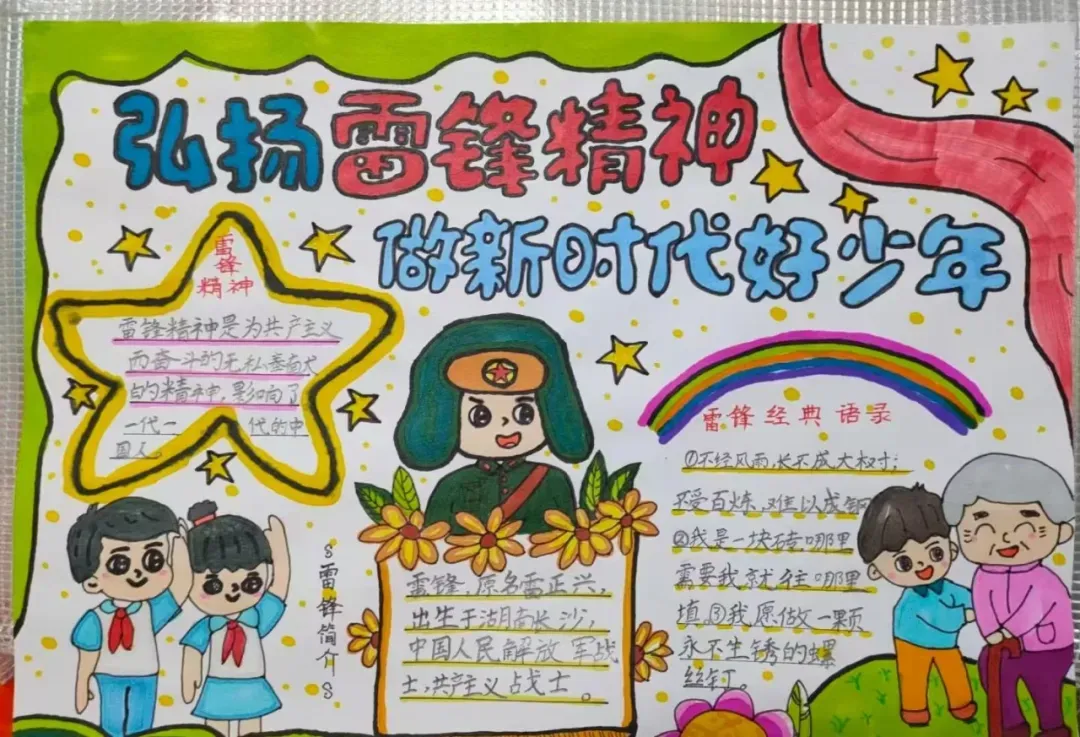 弘扬雷锋精神
做新时代好少年
雷锋
精神
雷锋精神是为共产主义
而奋斗的无私奉献
的精神,影响了
一代一代的中
国人。
雷锋简介
雷锋,原名雷正兴,
出生于湖南长沙,
中国人民解放军战
士,共产主义战士。
雷锋经典语录
①不经风雨,长不成大树;
不受百炼,难以成钢
②我是一块砖,哪里
需要我就往哪里
填,③我愿做一颗
永不生锈的螺
丝钉。